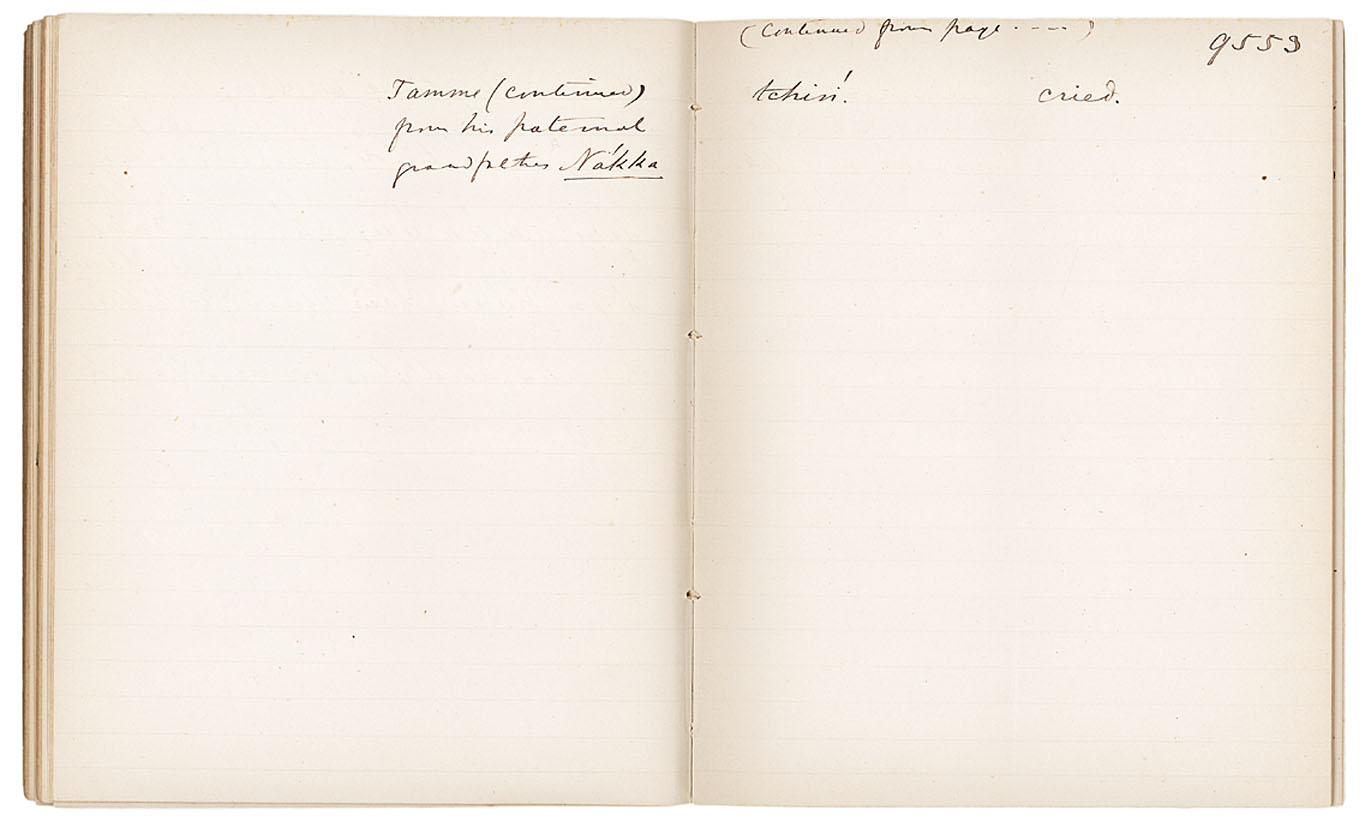 Tamme (continued)
from his paternal
grandfather Nákka
(Continued from page ----)
9553
tchiń. cried.